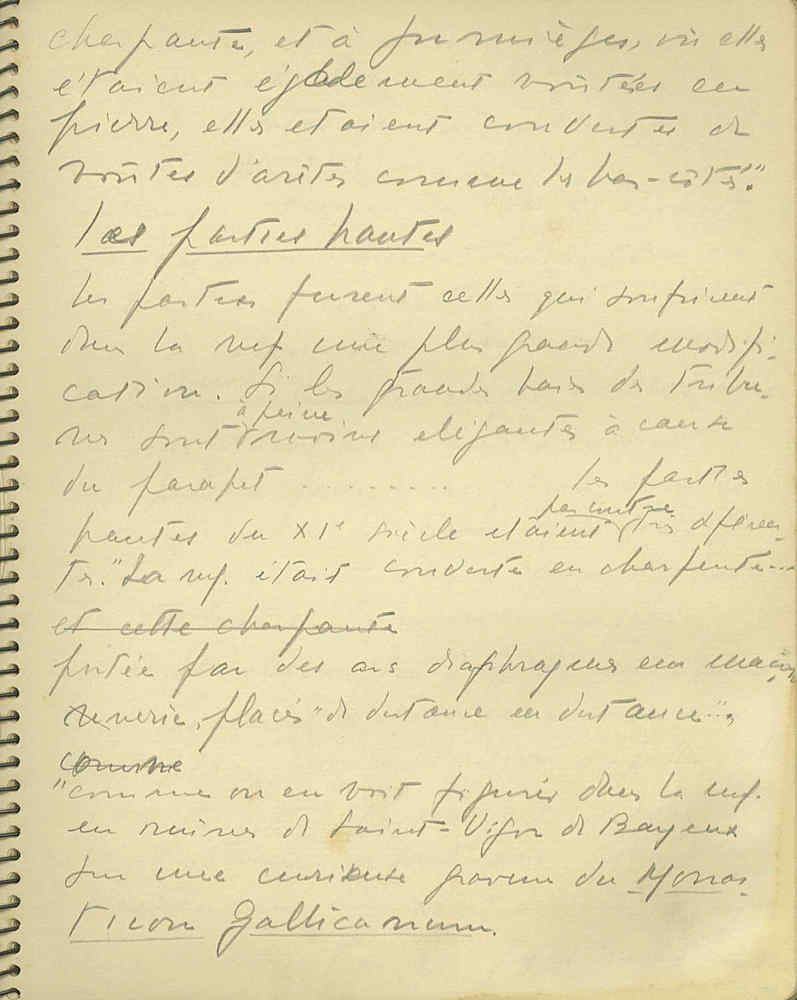 charpente, et à Jumièges, où elles
étaient également voûtées en
pierre, elles étaient couvertes de
voûtes d'arêtes comme les bas-côtés".
Les parties hautes
Les parties furent celles qui souffrirent
dans la nef une plus grande modifi-
cation. Si les grandes baies des tribu-
nes sont à peine moins élégantes à cause
du parapet ......... les parties
hautes du XIe siècle étaient par contre très différen-
tes. "La nef. était couverte en charpente...
et cette charpente
portée par des arcs diaphragmes en maçon-
nerie, placés "de distance en distance"...
comme
"comme on en voit figurés dans la nef.
en ruines de Saint-Vigor de Bayeux
sur une curieuse gravure du Monas-
ticon Gallicanum.